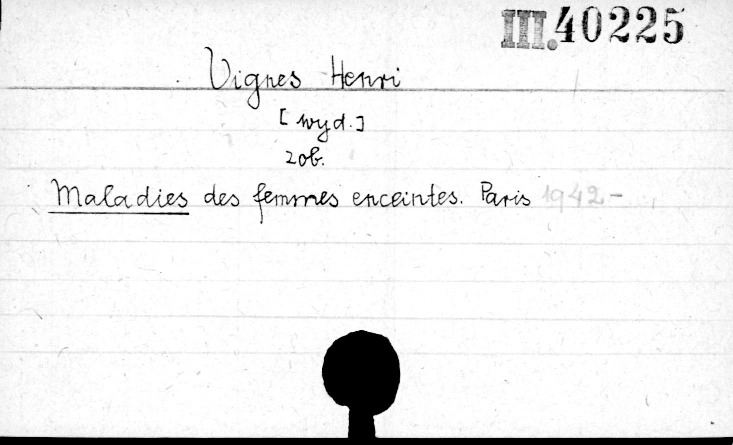 III.40225
Vignes Henri
[wyd.]
zob.
Maladies des femmes enceintes. Paris 1942-